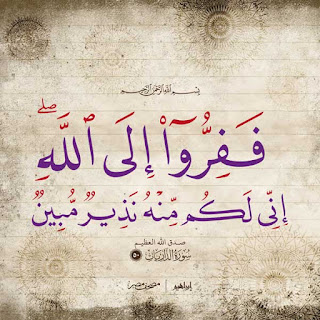 بسم الله الرحمن الرحيم
فَفِرُّوٓا۟ إِلَى ٱللَّهِ ۖ
إِنِّى لَكُم مِّنْهُ نَذِيرٌ مُّبِينٌ
صدق الله العظيم
سورة الذاريات ٥٠